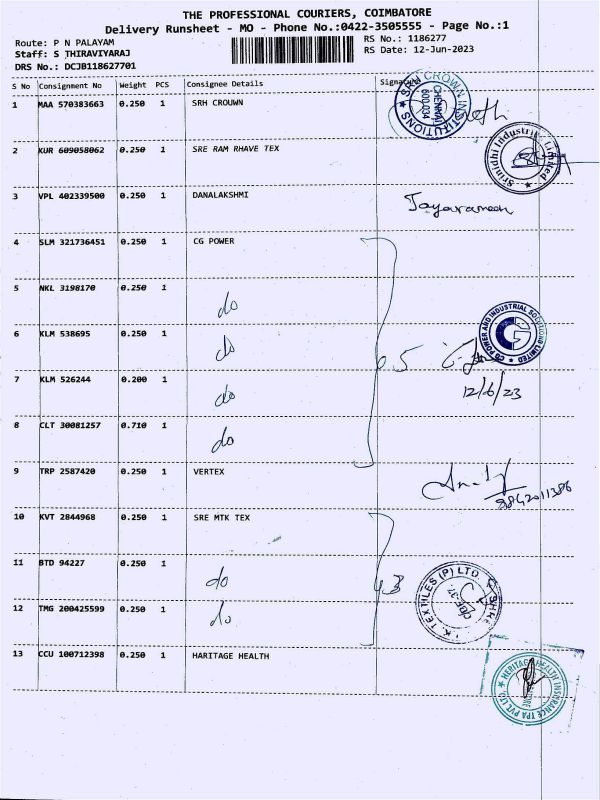 THE PROFESSIONAL COURIERS, COIMBATORE
Delivery Runsheet - MO - Phone No.:0422-3505555 - Page No.:1
Route: P N PALAYAM
RS No.: 1186277
Staff: S THIRAVIYARAJ
RS Date: 12-Jun-2023
DRS No.: DCJB118627701
S No Consignment No Weight PCS Consignee Details Signature
1 MAA 570383663 0.250 1 SRH CROUWN
SRH CROWN INSTITUTIONS
CHENNAI
600.034
2 KUR 609058062 0.250 1 SRE RAM RHAVE TEX
Srinidhi Industries Limited
3 VPL 402339500 0.250 1 DANALAKSHMI
4 SLM 321736451 0.250 1 CG POWER
5 NKL 3198170 0.250 1 do
6 KLM 538695 0.250 1 do
CG POWER AND INDUSTRIAL SOLUTIONS LIMITED
7 KLM 526244 0.200 1 do
12/6/23
8 CLT 30081257 0.710 1 do
9 TRP 2587420 0.250 1 VERTEX
10 KVT 2844968 0.250 1 SRE MTK TEX
11 BTD 94227 0.250 1 do
K. TEXTILES (P) LTD.
CBE-37
12 TMG 200425599 0.250 1 do
13 CCU 100712398 0.250 1 HARITAGE HEALTH
HERITAGE HEALTH INSURANCE TPA PVT. LTD